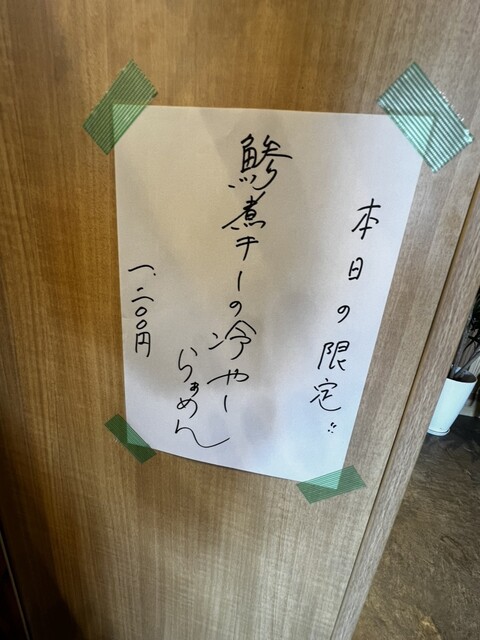 本日の限定!!
鯵煮干しの冷やし
らぁめん
一、二〇〇円